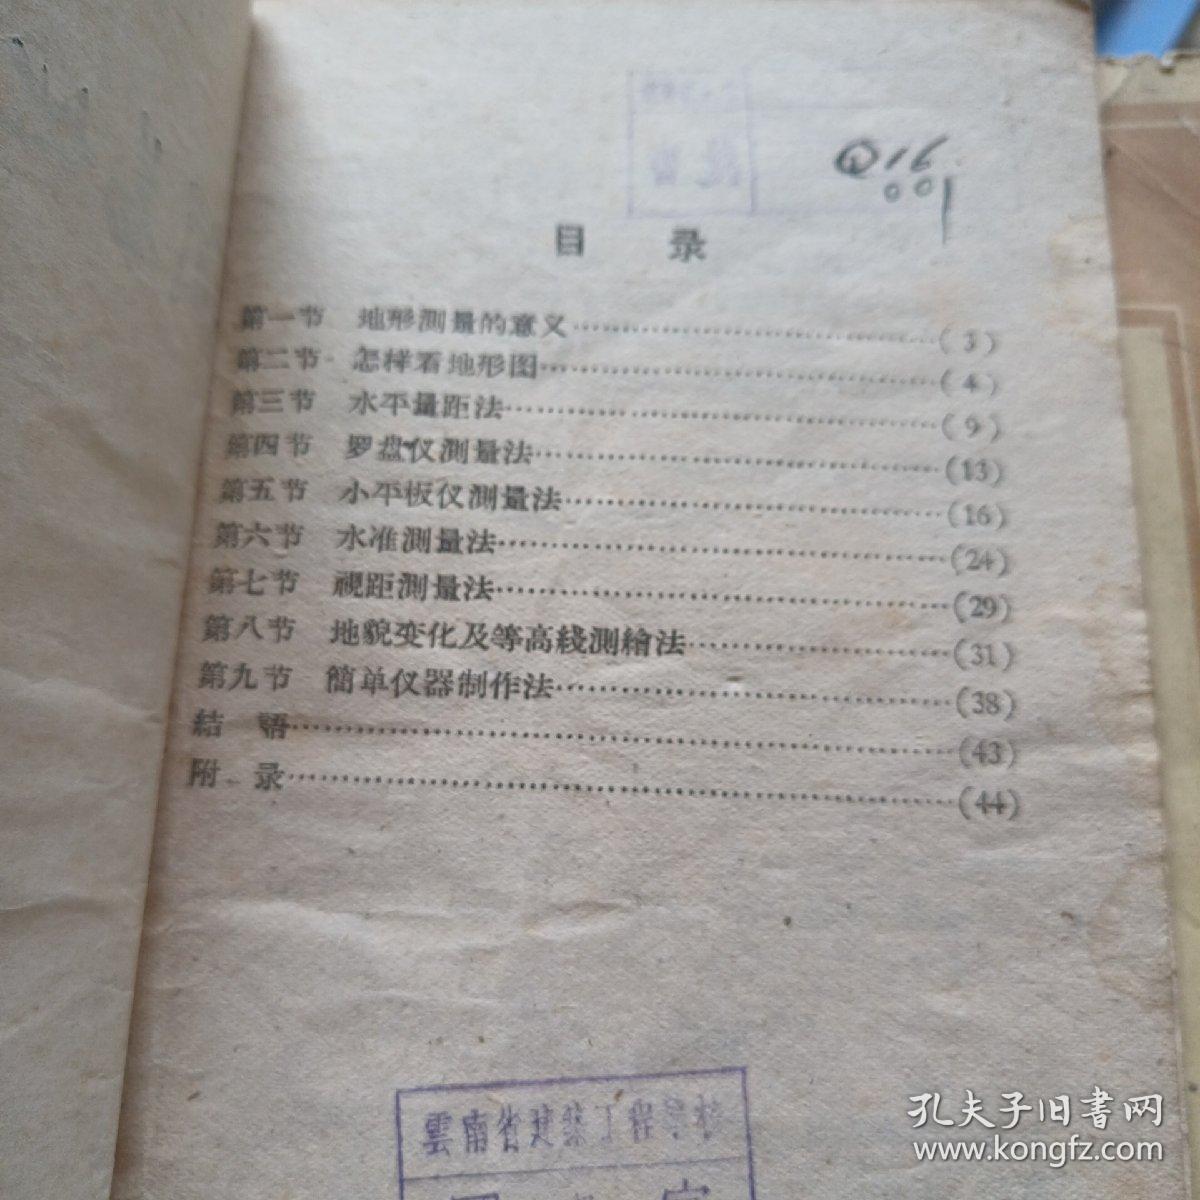 目 录
第一节 地形測量的意义……(3)
第二节 怎样看地形图……(4)
第三节 水平量距法……(9)
第四节 罗盘仪測量法……(13)
第五节 小平板仪測量法……(16)
第六节 水准測量法……(24)
第七节 視距測量法……(29)
第八节 地貌变化及等高綫測繪法……(31)
第九节 簡单仪器制作法……(38)
結 語……(43)
附 录……(44)
雲南省建築工程学校
孔夫子旧书网
www.kongfz.com